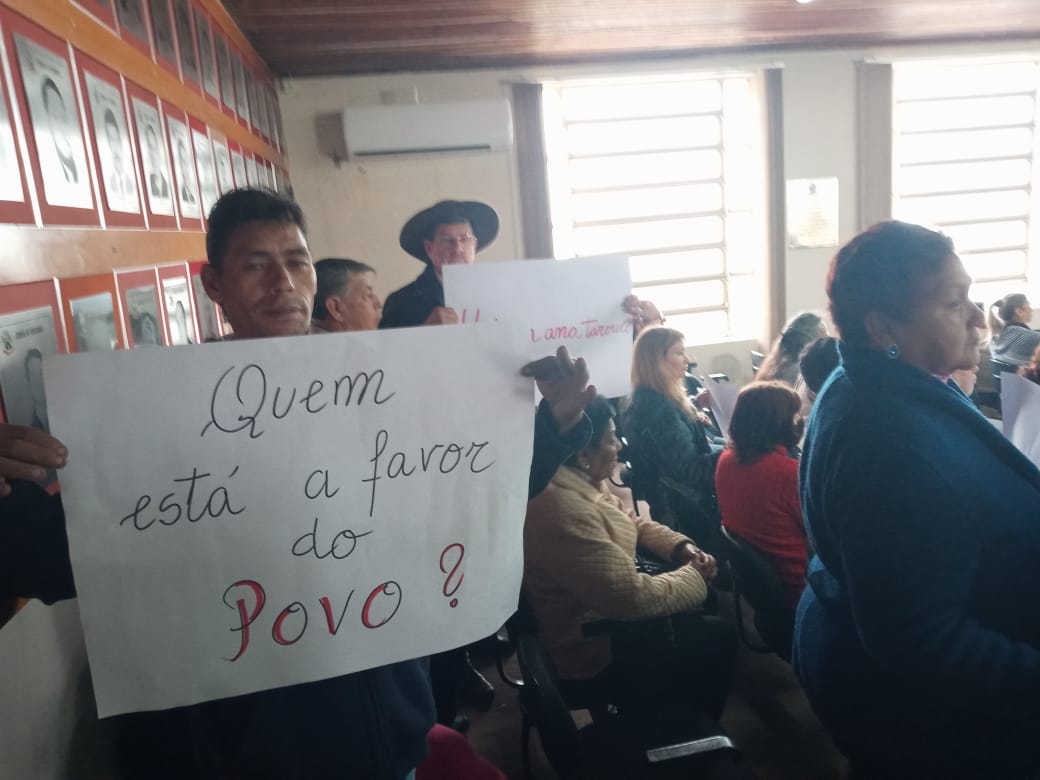 Quem
está a favor
do
Povo?